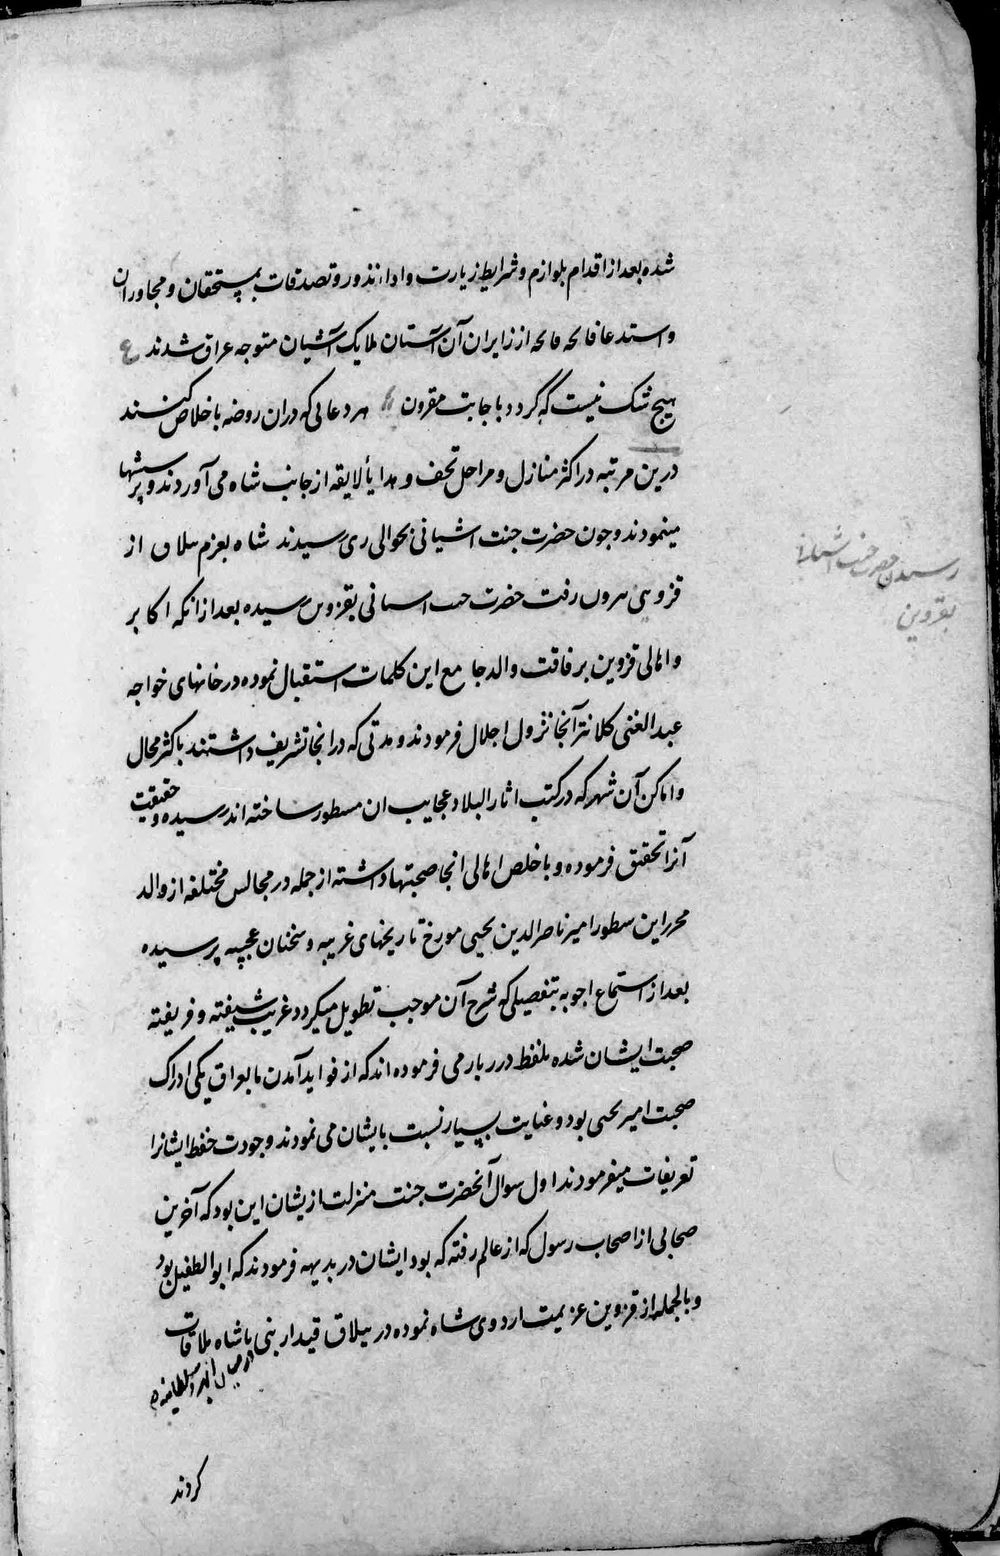 شده بعد از اقدام بلوازم و شرایط زیارت و اداء نذور و تصدقات بمستحقان و مجاوران
و استدعا فاتحه فاتحه از زایران آن آستان ملایک آشیان متوجه عراق شدند ع
هیچ شک نیست که گردد باجابت مقرون هر دعائی که دران روضه باخلاص کنند
درین مرتبه در اکثر منازل و مراحل تحف و هدایاً لایقه از جانب شاه می آوردند و پرسشها
مینمودند و چون حضرت جنت اشیانی بحوالی ری رسیدند شاه بعزم ییلاق از
قزوین بیرون رفت حضرت جنت اسیانی بقزوین رسیده بعد از انکه اکابر
و اهالی قزوین برفاقت والد جامع این کلمات استقبال نموده در خانهای خواجه
عبد الغنی کلانتر آنجا نزول اجلال فرمودند و مدتی که در انجا تشریف داشتند باکثر محال
و اماکن آن شهر که در کتب اثار البلاد عجایب ان مسطور ساخته اند رسیده و حقیقت
آنرا تحقیق فرموده و باخلص اهالی انجا صحبتها داشته از جمله در مجالس مختلفه از والد
محرر این سطور امیر ناصر الدین یحیی مورخ تاریخهای غریبه و سخنان عجیبه پرسیده
بعد از استماع اجوبه بتفصیلی که شرح آن موجب تطویل میگردد غریب شیفته و فریفته
صحبت ایشان شده بلفظ درربار می فرموده اند که از فواید آمدن ما بعراق یکی ادراک
صحبت امیر یحیی بود و عنایت بسیار نسبت بایشان می نمودند و جودت حفظ ایشانرا
تعریفات میفرمودند اول سوال آنحضرت جنت منزلت ازیشان این بود که آخرین
صحابی از اصحاب رسول که از عالم رفته که بود ایشان در بدیهه فرمودند که ابو الطفیل بود
و بالجمله از قزوین عزیمت اردوی شاه نموده در ییلاق قیدار نبی باشاه ملاقات
در میان ابهر و سلطانیه
کردند
رسیدن حضرت جنت اشیانی
بقزوین